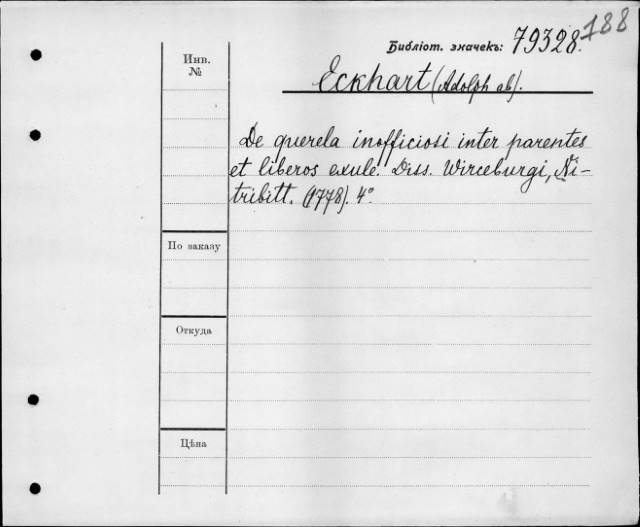 188
Библіот. значекъ: 79328.
Инв.
№
Eckhart (Adolph ab).
De querela inofficiosi inter parentes
et liberos exule. Diss. Wirceburgi, Ni-
tribitt. (1778). 4°.
По заказу
Откуда
Цѣна